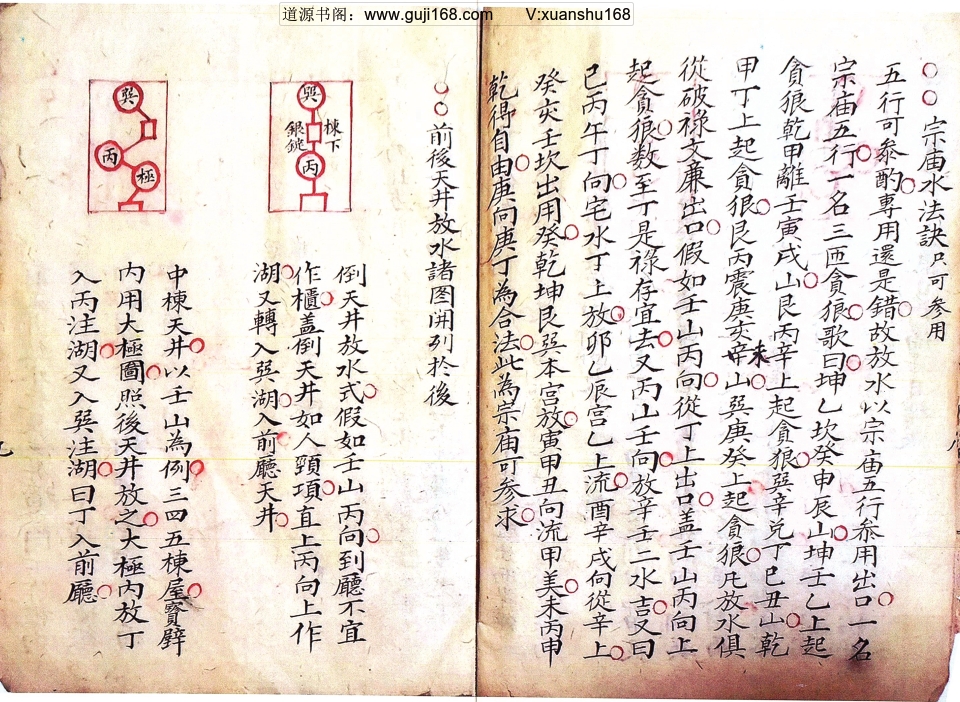 道源书阁：www.guji168.com V:xuanshu168
宗庙水法訣只可参用
五行可叅酌專用還是錯故放水以宗庙五行叅用出口一名
宗庙五行一名三匝貪狼歌曰坤乙坎癸申辰山坤壬乙上起
貪狼乾甲離壬寅戌山艮丙辛上起貪狼巽辛兑丁巳丑山乾
甲丁上起貪狼艮丙震庚亥未山巽庚癸上起貪狼凡放水俱
從破祿文亷出口假如壬山丙向從丁上出口盖壬山丙向上
起貪狼数至丁是祿存宜去又丙山壬向放辛壬二水吉又曰
巳丙午丁向宅水丁上放卯乙辰宫乙上流酉辛戌向從辛上
癸亥壬坎出用癸乾坤艮巽本宫放寅甲丑向流甲美未丙申
乾得自由庚向庚丁為合法此為宗庙可参求
前後天井放水諸图開列於後
巽
棟下
銀錠
丙
巽
丙
極
倒天井放水式假如壬山丙向到廳不宜
作櫃盖倒天井如人頸項直上丙向上作
湖又轉入巽湖入前廳天井
中棟天井以壬山為例三四五棟屋寳壁
内用大極圖照後天井放之大極内放丁
入丙注湖又入巽注湖曰丁入前廳